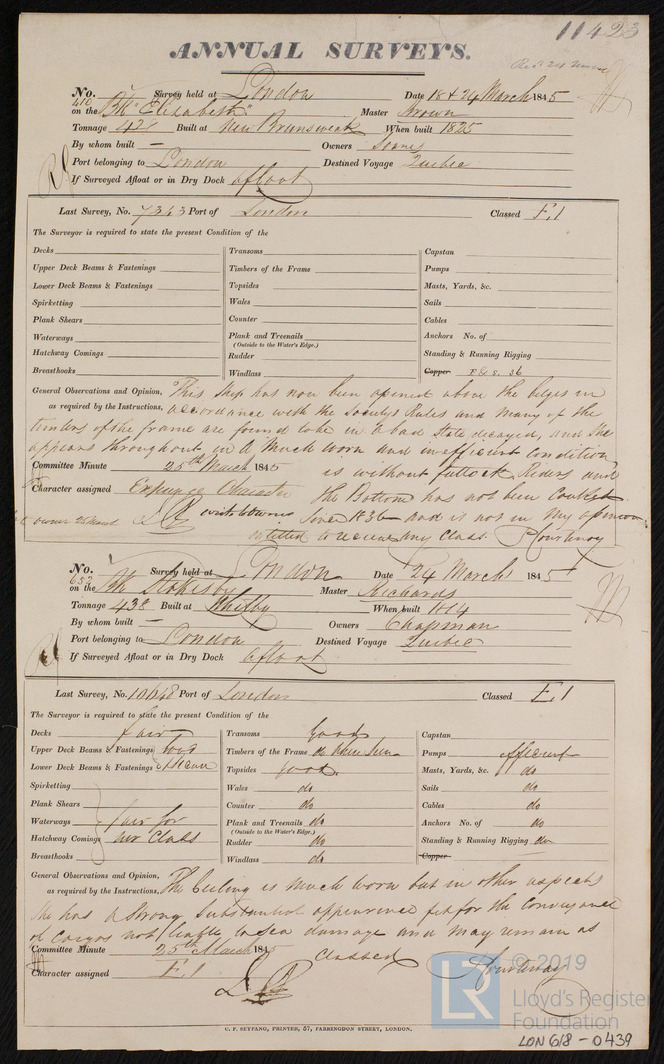 11423
ANNUAL SURVEYS.
No. 410 Survey held at London Date 18 & 24 March 1845
on the Bk "Elizabeth" Master Brown
Tonnage 42 Built at New Brunswick When built 1825
By whom built — Owners
Port belonging to London Destined Voyage Quebec
If Surveyed Afloat or in Dry Dock afloat
Last Survey, No. 7343 Port of London Classed Æ.1
The Surveyor is required to state the present Condition of the
Decks Transoms Capstan
Upper Deck Beams & Fastenings Timbers of the Frame Pumps
Lower Deck Beams & Fastenings Topsides Masts, Yards, &c.
Spirketting Wales Sails
Plank Shears Counter Cables
Waterways Plank and Treenails Anchors No. of
(Outside to the Water's Edge.)
Hatchway Comings Rudder Standing & Running Rigging
Breasthooks Windlass Copper F & S. 36
General Observations and Opinion, "This Ship has now been opened above the bilges in
as required by the Instructions, accordance with the Society's Rules and many of the
timbers of the frame are found to be in a bad state decayed, and she
appears throughout in a much worn and inefficient condition
Committee Minute 25th March 1845 is without futtock Riders and
Character assigned Expunge Character the Bottom has not been Caulked
owner since 1836 and is not in my opinion
entitled to receive any Class. P Courtenay
No. 652 Survey held at London Date 24 March 1845
on the Bk Stokesby Master Richards
Tonnage 438 Built at Whitby When built 1814
By whom built — Owners Chapman
Port belonging to London Destined Voyage Quebec
If Surveyed Afloat or in Dry Dock afloat
Last Survey, No. 10648 Port of London Classed Æ.1
The Surveyor is required to state the present Condition of the
Decks fair Transoms good Capstan
Upper Deck Beams & Fastenings good Timbers of the Frame do where seen Pumps efficient
Lower Deck Beams & Fastenings Topsides good. Masts, Yards, &c. do
Spirketting Wales do Sails do
Plank Shears Counter do Cables do
Waterways fair for Plank and Treenails do Anchors No. of do
(Outside to the Water's Edge.)
Hatchway Comings her Class Rudder do Standing & Running Rigging do
Breasthooks Windlass do Copper
General Observations and Opinion, The Ceiling is much worn but in other respects
as required by the Instructions, she has a strong substantial appearance fit for the Conveyance
of Cargos not liable to sea damage and may remain as
Committee Minute 25th March 1845 Classed
Character assigned Æ.1 P Courtenay
C. F. SEYFANG, PRINTER, 57, FARRINGDON STREET, LONDON.
© 2019
LR
Lloyd's Register
Foundation
LON618-0439